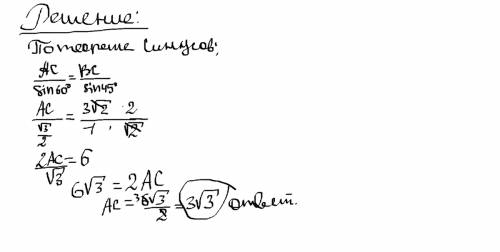 Решение:
По теореме синусов;
AC/sin60° = BC/sin45°
AC/(√3/2) = 3√2 · 2/1 · √2
2AC/√3 = 6
6√3 = 2AC
AC = 6√3/2 = 3√3 ответ.